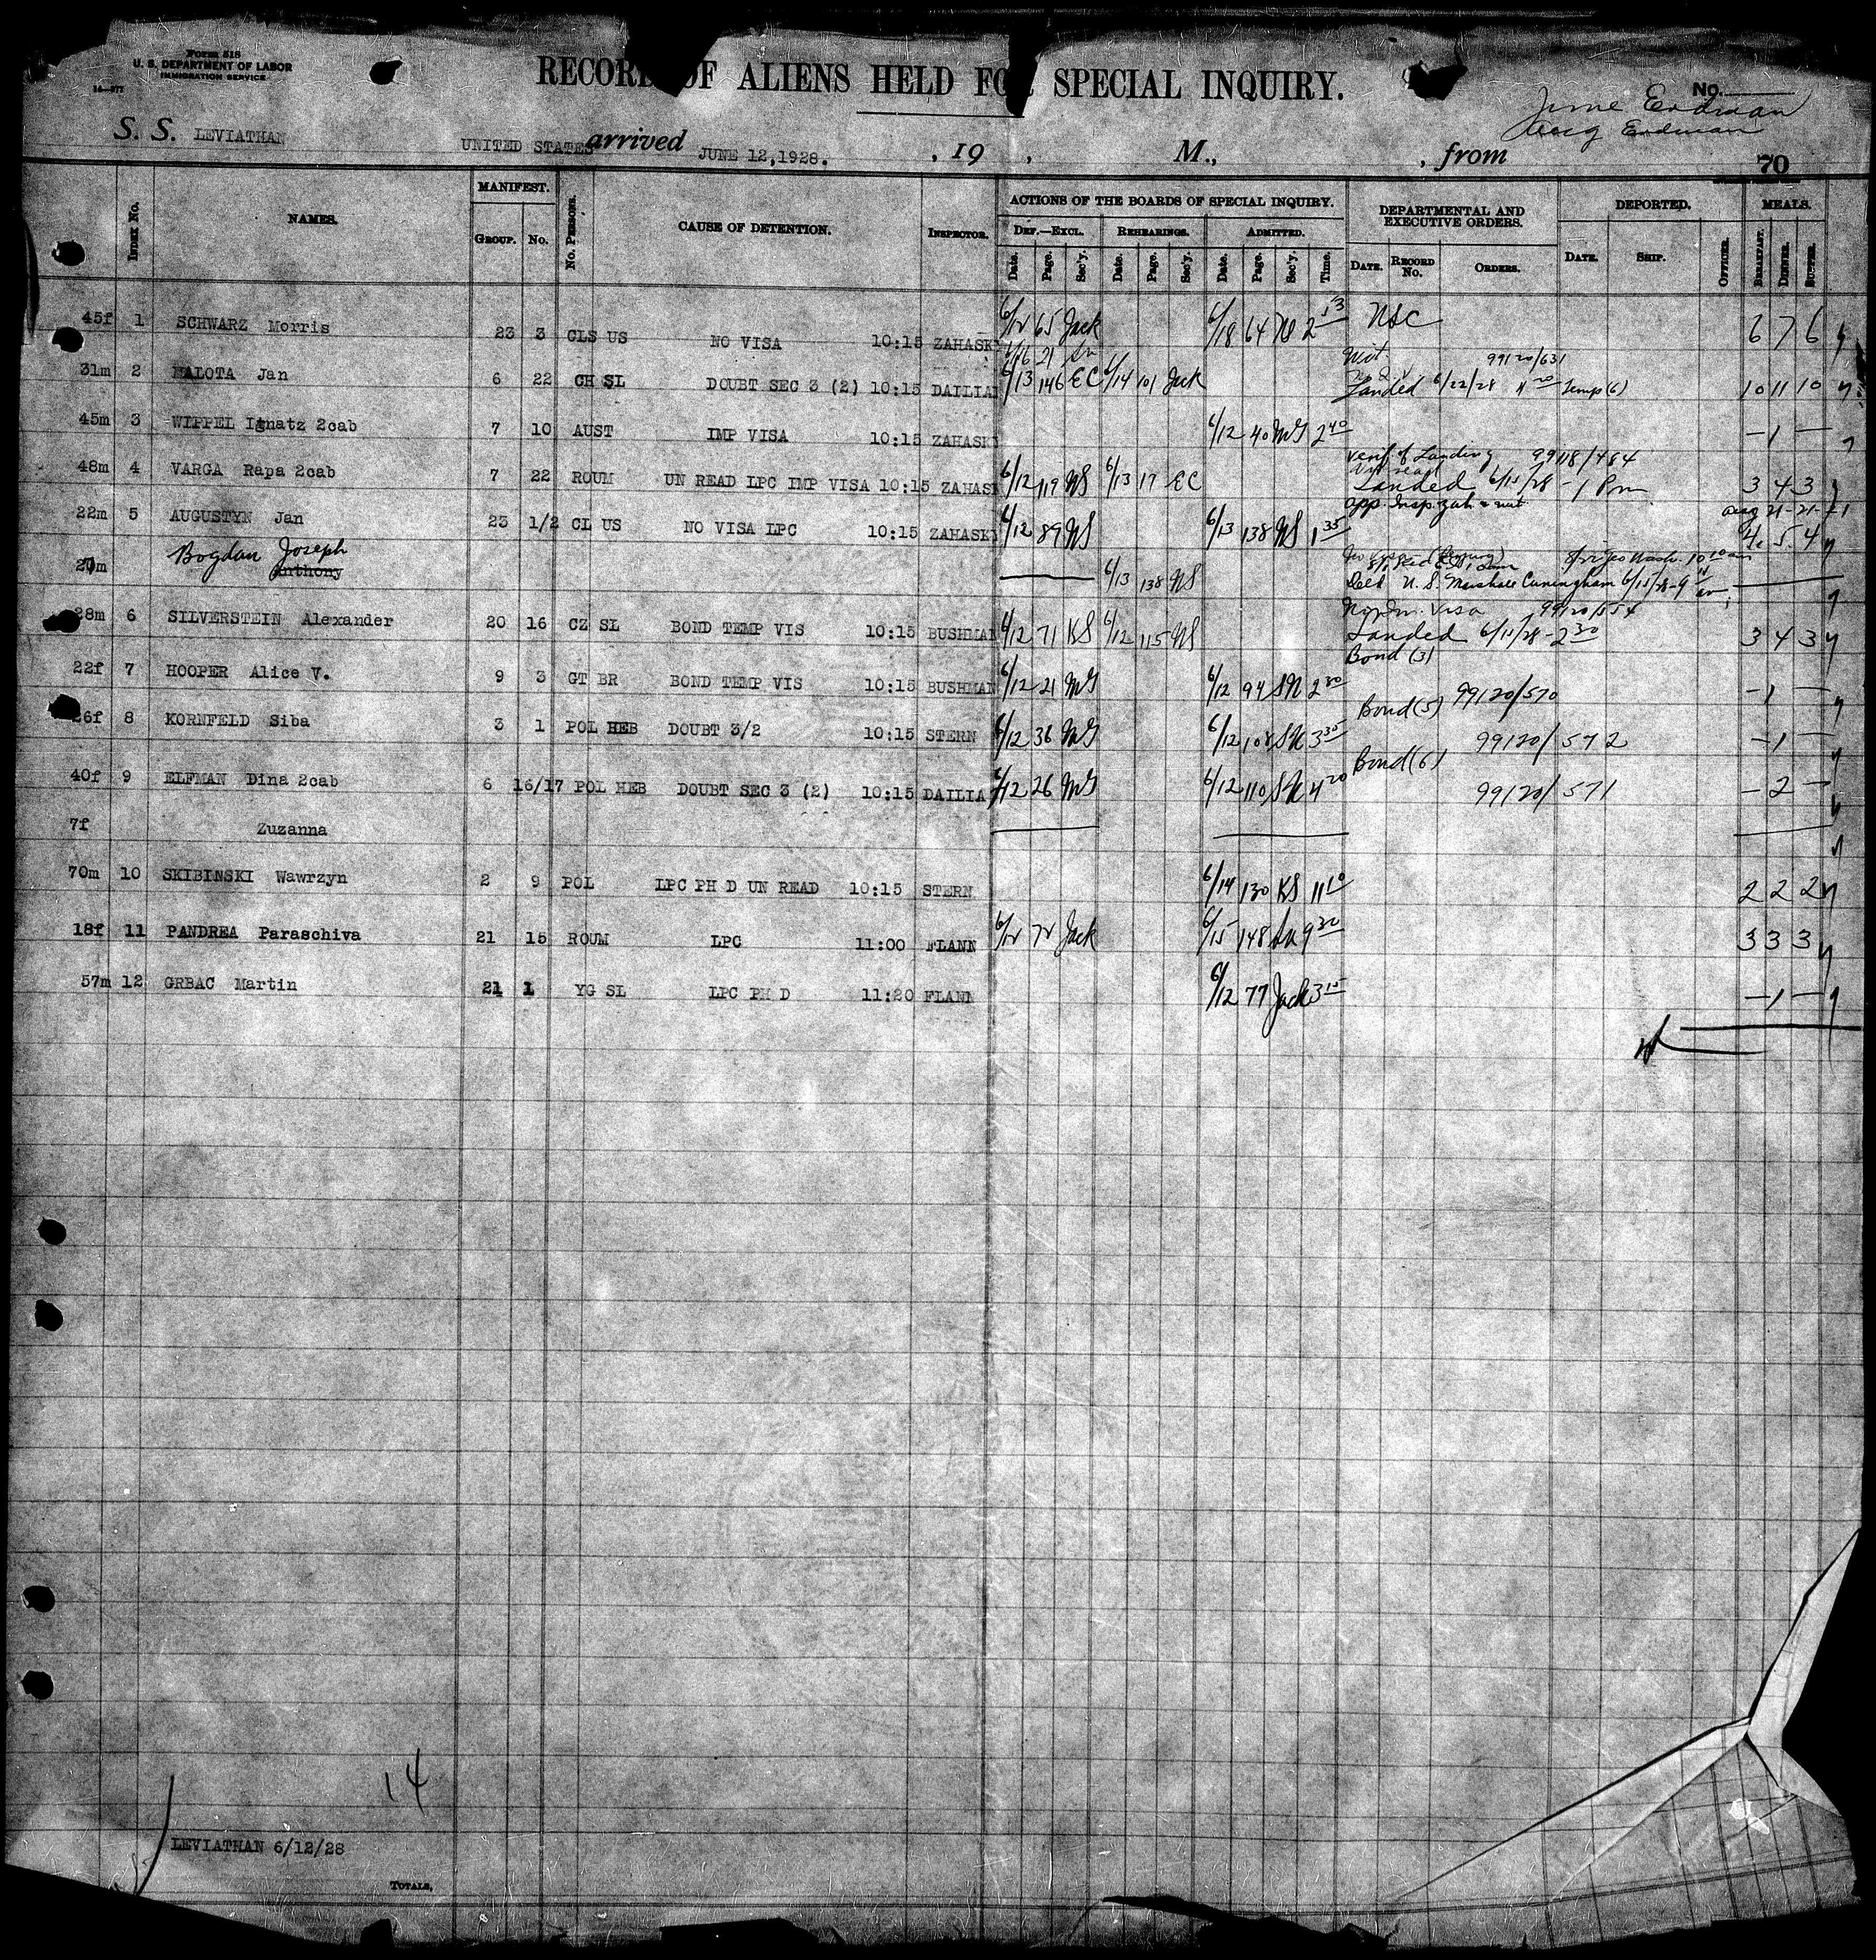 Form 518
U. S. DEPARTMENT OF LABOR
IMMIGRATION SERVICE
RECORD OF ALIENS HELD FOR SPECIAL INQUIRY.
No.
June Erdman
Erdman
S. S. LEVIATHAN UNITED STATES arrived JUNE 12,1928. , 19 , M., , from
70
Index No. NAMES. MANIFEST. GROUP. No. No. PERSONS. CAUSE OF DETENTION. INSPECTOR. ACTIONS OF THE BOARDS OF SPECIAL INQUIRY. DEPARTMENTAL AND EXECUTIVE ORDERS. DEPORTED. MEALS.
DEF.—EXCL. REHEARINGS. ADMITTED.
Date. Page. Sec'y. Date. Page. Sec'y. Date. Page. Sec'y. Time. DATE. RECORD No. ORDERS. DATE. SHIP. OFFICER. BREAKFAST. DINNER. SUPPER.
45f 1 SCHWARZ Morris 23 3 CLS US NO VISA 10:15 ZAHASK 6/12 65 Jack 6/18 64 2 NSC 6 7 6
6/16 21 99120/631
31m 2 MALOTA Jan 6 22 CH SL DOUBT SEC 3 (2) 10:15 DAILIA 6/13 146 EC 6/14 101 Jack Landed 6/22/28 Temp(6) 10 11 10
45m 3 WIPPEL Ignatz 2cab 7 10 AUST IMP VISA 10:15 ZAHASK 6/12 40 MG 2 40 — 1 —
verif of Landing 99118/484
48m 4 VARGA Rapa 2cab 7 22 ROUM UN READ LPC IMP VISA 10:15 ZAHAS 6/12 119 NS 6/13 17 EC Landed 6/15/28 - 1 Pm 3 4 3
22m 5 AUGUSTYN Jan 23 1/2 CL US NO VISA LPC 10:15 ZAHASK 6/12 89 NS 6/13 138 NS 1 35 4 5 4
Bogdan Joseph
20m Anthony 6/13 138 NS Deld U. S. Marshall Cuningham 6/15/28-9
99120/554
28m 6 SILVERSTEIN Alexander 20 16 CZ SL BOND TEMP VIS 10:15 BUSHMAN 6/12 71 KS 6/12 115 NS Landed 6/15/28 - 2 30 3 4 3
Bond (3)
22f 7 HOOPER Alice V. 9 3 GT BR BOND TEMP VIS 10:15 BUSHMAN 6/12 21 MG 6/12 94 SN 2 Bond(5) 99120/570 — 1 —
26f 8 KORNFELD Siba 3 1 POL HEB DOUBT 3/2 10:15 STERN 6/12 36 MG 6/12 108 SN 3 35 Bond(6) 99120/572 — 1 —
40f 9 ELFMAN Dina 2cab 6 16/17 POL HEB DOUBT SEC 3 (2) 10:15 DAILIA 6/12 26 MG 6/12 110 SN 4 20 99120/571 — 2 —
7f Zuzanna
70m 10 SKIBINSKI Wawrzyn 2 9 POL LPC PH D UN READ 10:15 STERN 6/14 130 KS 11 10 2 2 2
18f 11 PANDREA Paraschiva 21 15 ROUM LPC 11:00 FLANN 6/12 72 Jack 6/15 148 9 20 3 3 3
57m 12 GRBAC Martin 21 1 YG SL LPC PH D 11:20 FLANN 6/12 77 Jack 3 15 — 1 —
14
LEVIATHAN 6/12/28
TOTALS,